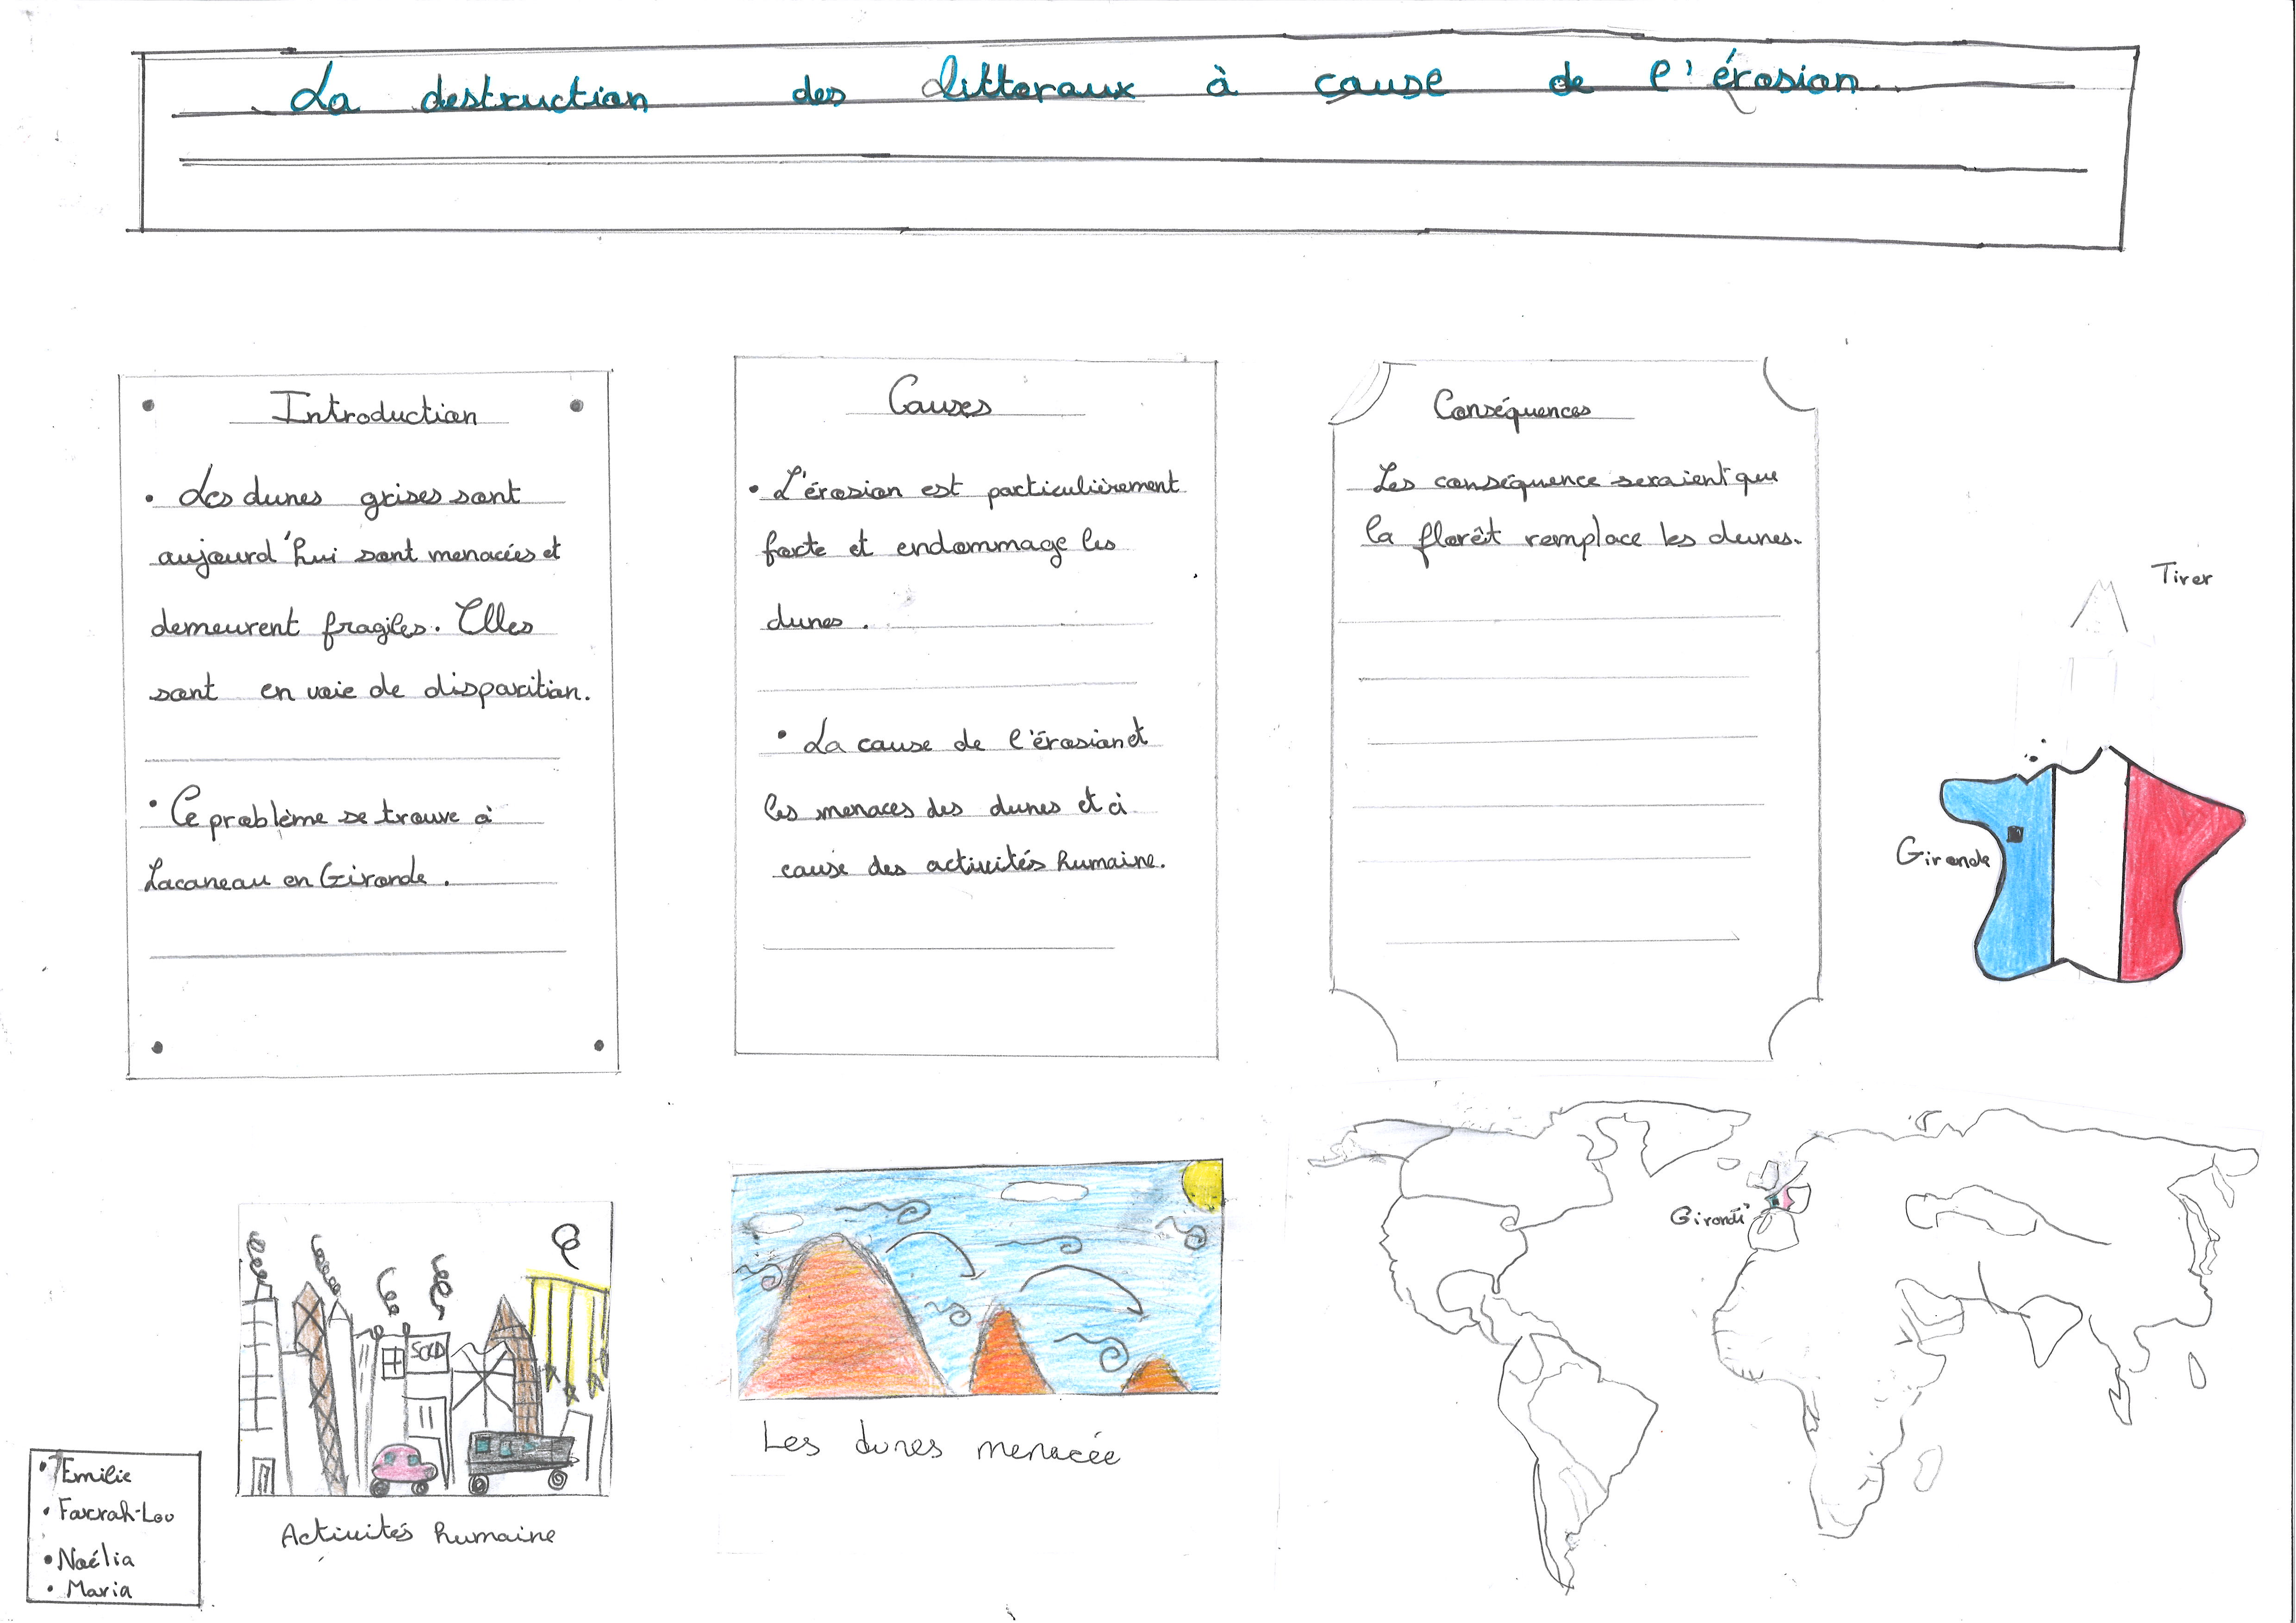 La destruction des littoraux à cause de l'érosion.
Introduction
• Les dunes grises sont
aujourd'hui sont menacées et
demeurent fragiles. Elles
sont en voie de disparition.
• Ce problème se trouve à
Lacaneau en Gironde.
Causes
• L'érosion est particulièrement
forte et endommage les
dunes.
• La cause de l'érosion et
les menaces des dunes et à
cause des activités humaine.
Conséquences
Les conséquence seraient que
la florêt remplace les dunes.
Tirer
Gironde
Gironde
SOLD
Activités humaine
Les dunes menacée
• Emilie
• Farrah-Lou
• Noélia
• Maria